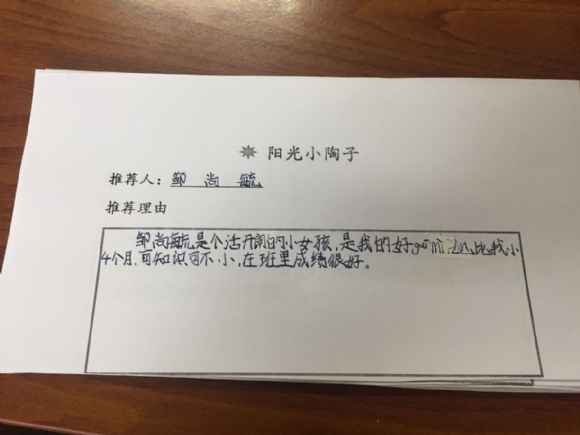 阳光小陶子
推荐人：邹尚毓
推荐理由
邹尚毓是个活开朗的小女孩，是我的好 比我小
4个月，可知识可不小，在班里成绩很好。